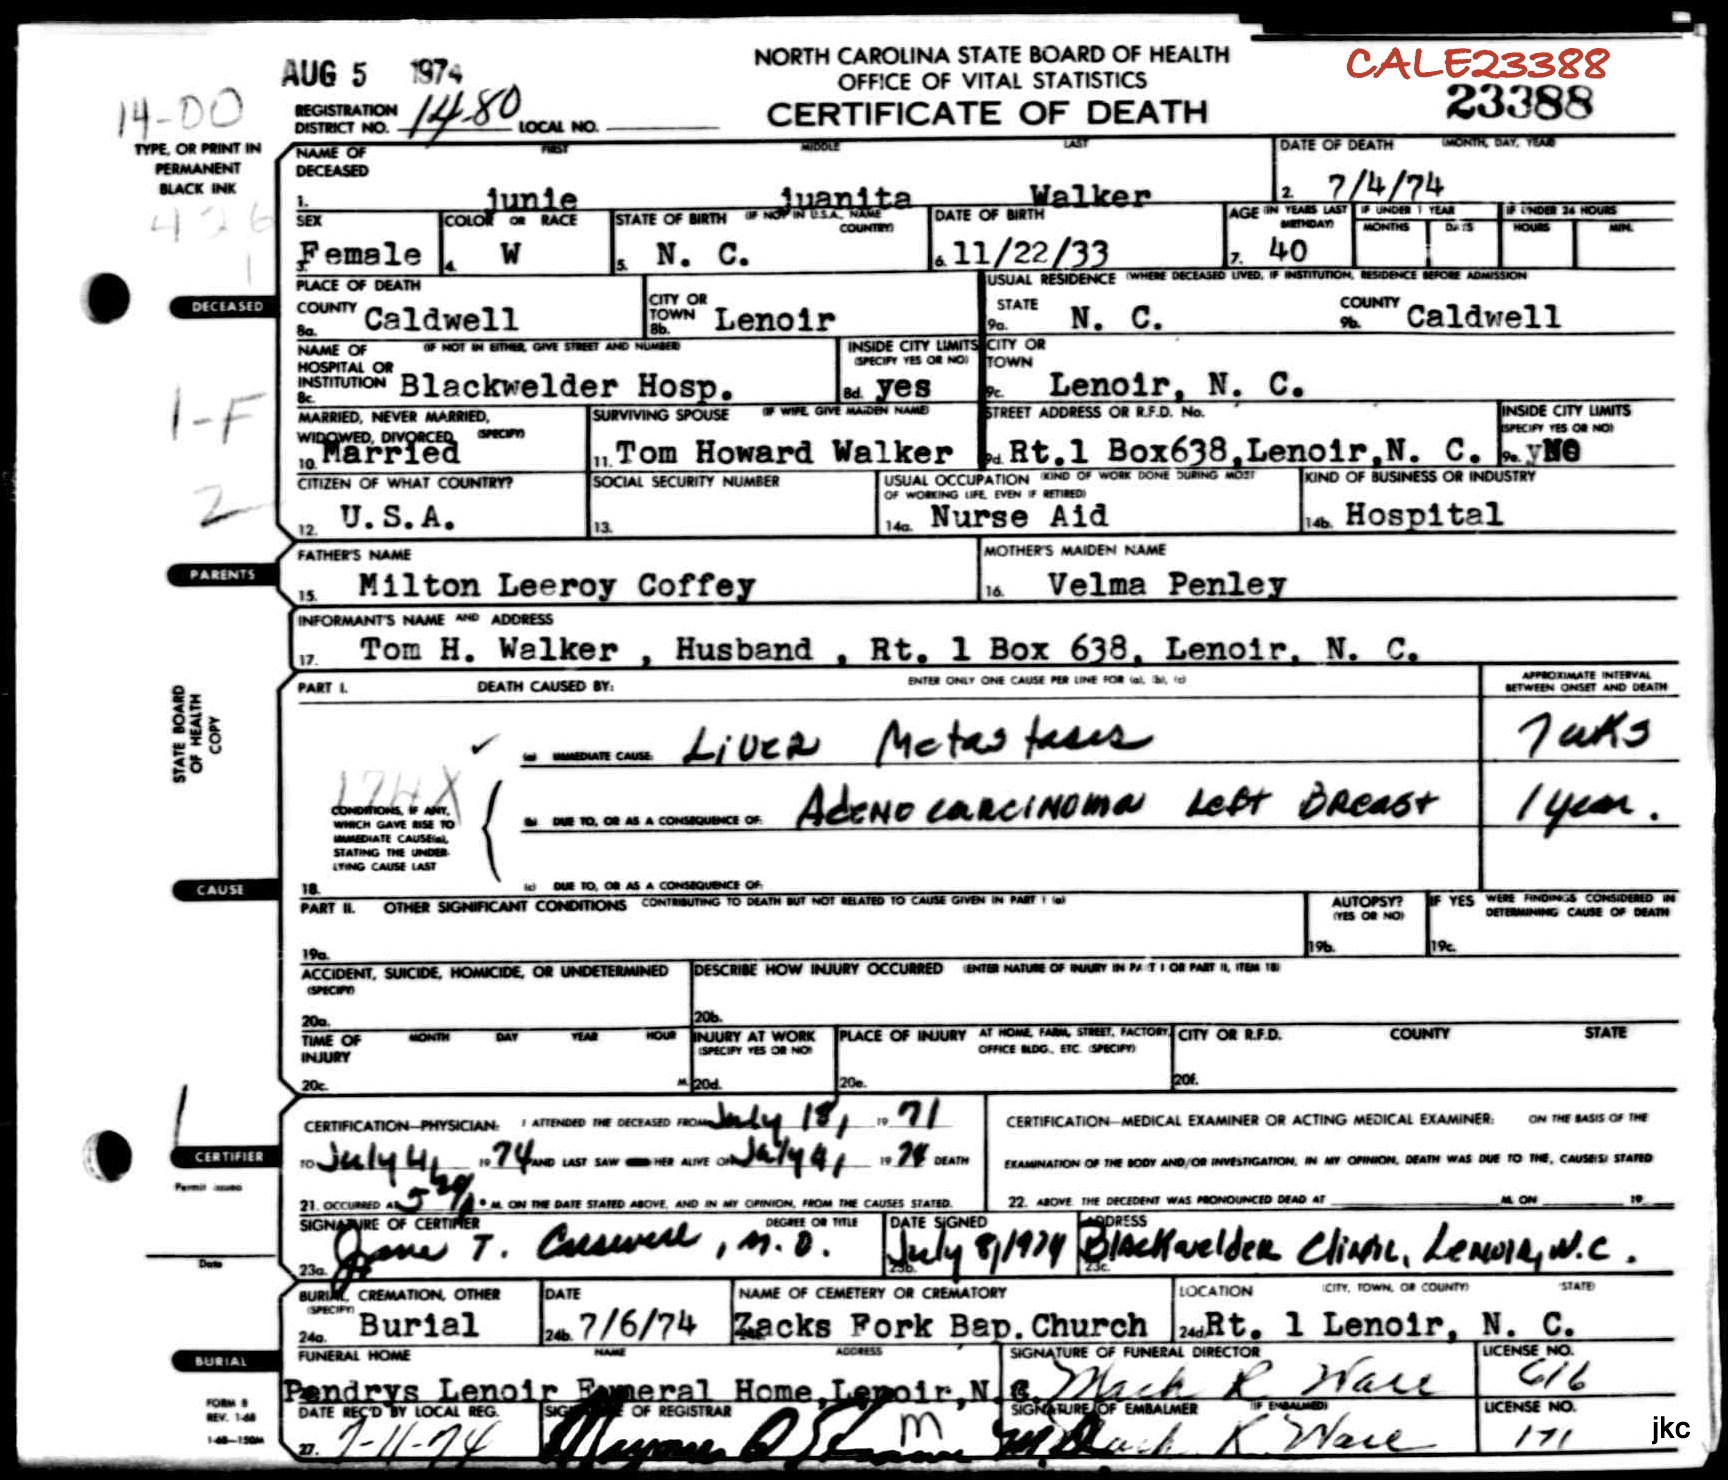 NORTH CAROLINA STATE BOARD OF HEALTH
OFFICE OF VITAL STATISTICS
CERTIFICATE OF DEATH
CALE23388
23388
AUG 5 1974
14-DO
REGISTRATION DISTRICT NO. 14-80 LOCAL NO.
TYPE, OR PRINT IN PERMANENT BLACK INK
426
1
DECEASED
NAME OF DECEASED FIRST MIDDLE LAST
1. junie juanita Walker
DATE OF DEATH (MONTH, DAY, YEAR)
2. 7/4/74
SEX
3. Female
COLOR OR RACE
4. W
STATE OF BIRTH (IF NOT IN U.S.A., NAME COUNTRY)
5. N. C.
DATE OF BIRTH
6. 11/22/33
AGE (IN YEARS LAST BIRTHDAY)
7. 40
IF UNDER 1 YEAR MONTHS DAYS
IF UNDER 24 HOURS HOURS MIN.
PLACE OF DEATH
COUNTY
8a. Caldwell
CITY OR TOWN
8b. Lenoir
USUAL RESIDENCE (WHERE DECEASED LIVED, IF INSTITUTION, RESIDENCE BEFORE ADMISSION
STATE
9a. N. C.
COUNTY
9b. Caldwell
NAME OF HOSPITAL OR INSTITUTION (IF NOT IN EITHER, GIVE STREET AND NUMBER)
8c. Blackwelder Hosp.
INSIDE CITY LIMITS (SPECIFY YES OR NO)
8d. yes
CITY OR TOWN
9c. Lenoir, N. C.
1-F
MARRIED, NEVER MARRIED, WIDOWED, DIVORCED (SPECIFY)
10. Married
SURVIVING SPOUSE (IF WIFE, GIVE MAIDEN NAME)
11. Tom Howard Walker
STREET ADDRESS OR R.F.D. No.
9d. Rt.1 Box638,Lenoir,N. C.
INSIDE CITY LIMITS (SPECIFY YES OR NO)
9e. yNO
2
CITIZEN OF WHAT COUNTRY?
12. U.S.A.
SOCIAL SECURITY NUMBER
13.
USUAL OCCUPATION (KIND OF WORK DONE DURING MOST OF WORKING LIFE, EVEN IF RETIRED)
14a. Nurse Aid
KIND OF BUSINESS OR INDUSTRY
14b. Hospital
PARENTS
FATHER'S NAME
15. Milton Leeroy Coffey
MOTHER'S MAIDEN NAME
16. Velma Penley
INFORMANT'S NAME AND ADDRESS
17. Tom H. Walker , Husband , Rt. 1 Box 638, Lenoir, N. C.
STATE BOARD OF HEALTH COPY
PART I. DEATH CAUSED BY: ENTER ONLY ONE CAUSE PER LINE FOR (a), (b), (c)
APPROXIMATE INTERVAL BETWEEN ONSET AND DEATH
(a) IMMEDIATE CAUSE: Liver Metastases 7 wks
174X
CONDITIONS, IF ANY, WHICH GAVE RISE TO IMMEDIATE CAUSE(a), STATING THE UNDERLYING CAUSE LAST
(b) DUE TO, OR AS A CONSEQUENCE OF: Adenocarcinoma Left Breast 1 year.
CAUSE
18. (c) DUE TO, OR AS A CONSEQUENCE OF:
PART II. OTHER SIGNIFICANT CONDITIONS CONTRIBUTING TO DEATH BUT NOT RELATED TO CAUSE GIVEN IN PART I (a)
19a.
AUTOPSY? (YES OR NO)
19b.
IF YES WERE FINDINGS CONSIDERED IN DETERMINING CAUSE OF DEATH
19c.
ACCIDENT, SUICIDE, HOMICIDE, OR UNDETERMINED (SPECIFY)
20a.
DESCRIBE HOW INJURY OCCURRED (ENTER NATURE OF INJURY IN PART I OR PART II, ITEM 18)
20b.
TIME OF INJURY MONTH DAY YEAR HOUR
20c. M.
INJURY AT WORK (SPECIFY YES OR NO)
20d.
PLACE OF INJURY AT HOME, FARM, STREET, FACTORY, OFFICE BLDG., ETC. (SPECIFY)
20e.
CITY OR R.F.D. COUNTY STATE
20f.
CERTIFIER
Permit issued
Date
CERTIFICATION—PHYSICIAN: I ATTENDED THE DECEASED FROM July 18, 19 71
TO July 4, 19 74 AND LAST SAW HER ALIVE ON July 4, 19 74 DEATH
21. OCCURRED AT M. ON THE DATE STATED ABOVE, AND IN MY OPINION, FROM THE CAUSES STATED.
CERTIFICATION—MEDICAL EXAMINER OR ACTING MEDICAL EXAMINER: ON THE BASIS OF THE
EXAMINATION OF THE BODY AND/OR INVESTIGATION, IN MY OPINION, DEATH WAS DUE TO THE, CAUSE(S) STATED
22. ABOVE. THE DECEDENT WAS PRONOUNCED DEAD AT M. ON 19
SIGNATURE OF CERTIFIER DEGREE OR TITLE
23a. T. , M.D.
DATE SIGNED
23b. July 8, 1974
ADDRESS
23c. Blackwelder Clinic, Lenoir, N.C.
BURIAL
BURIAL, CREMATION, OTHER (SPECIFY)
24a. Burial
DATE
24b. 7/6/74
NAME OF CEMETERY OR CREMATORY
Zacks Fork Bap. Church
LOCATION (CITY, TOWN, OR COUNTY) (STATE)
24d. Rt. 1 Lenoir, N. C.
FUNERAL HOME NAME ADDRESS
Pendrys Lenoir Funeral Home, Lenoir, N. C.
SIGNATURE OF FUNERAL DIRECTOR
Mack R Ware
LICENSE NO.
616
FORM 8
REV. 1-68
1-68—150M
DATE REC'D BY LOCAL REG.
27. 7-11-74
SIGNATURE OF REGISTRAR
SIGNATURE OF EMBALMER (IF EMBALMED)
Mack R Ware
LICENSE NO.
171
jkc